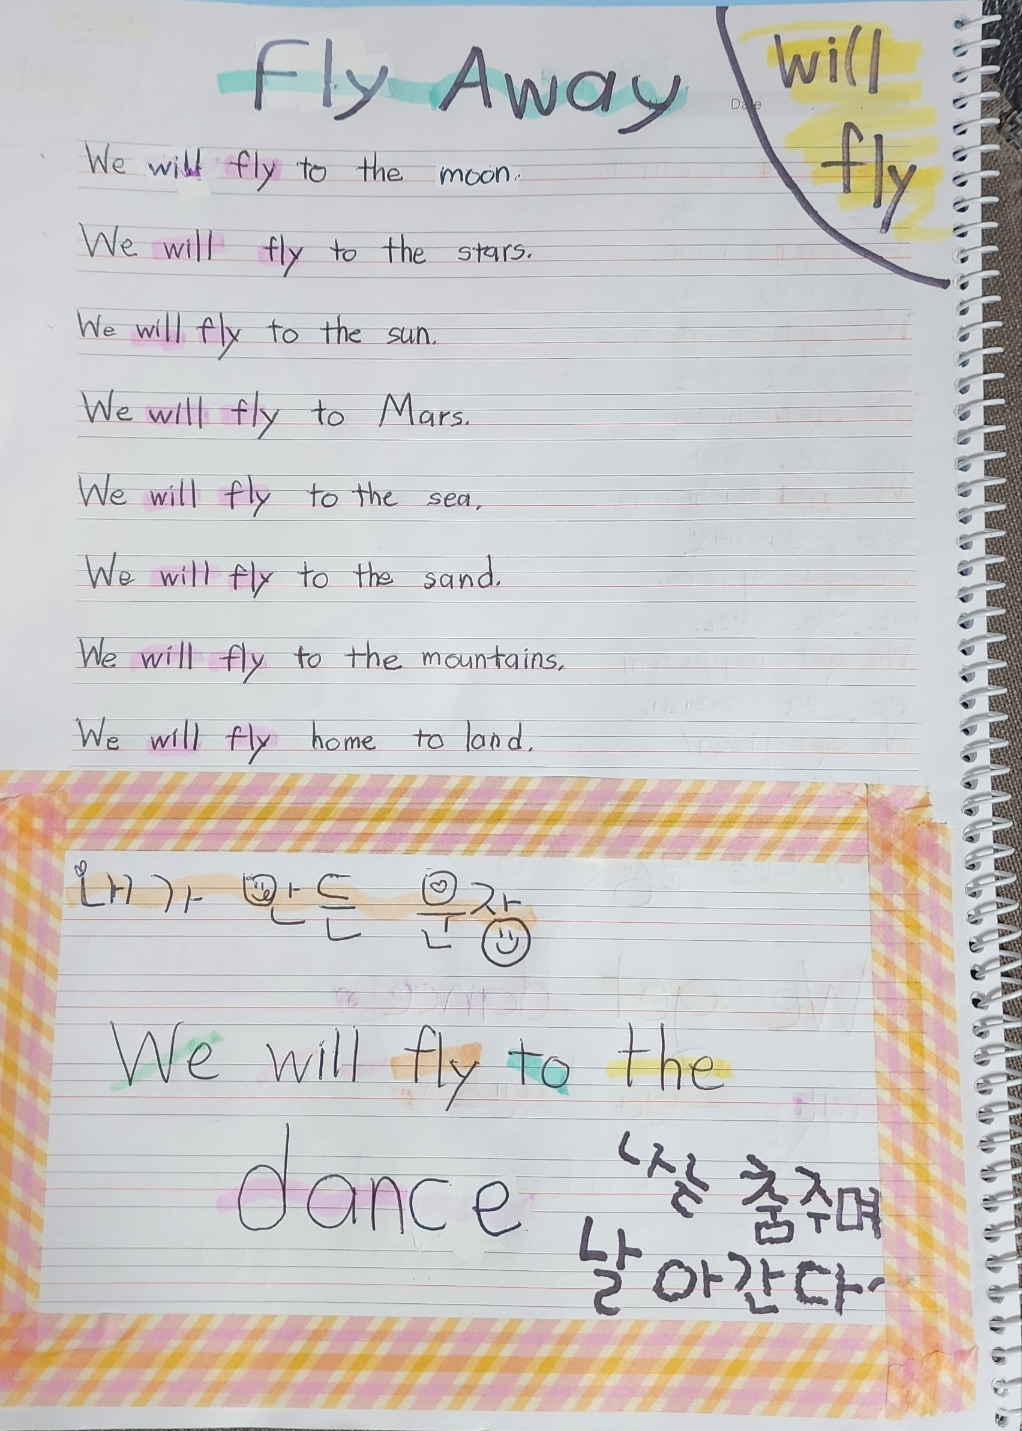 Fly Away
will
fly
Date
We will fly to the moon.
We will fly to the stars.
We will fly to the sun.
We will fly to Mars.
We will fly to the sea.
We will fly to the sand.
We will fly to the mountains.
We will fly home to land.
내가 만든 문장
We will fly to the
dance
춤추며
날아간다